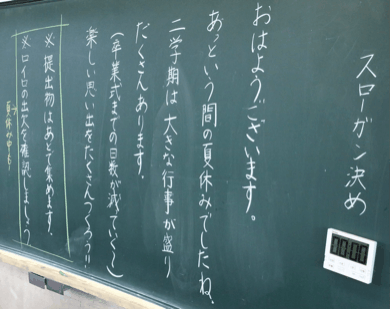 スローガン決め
おはようございます。
あっという間の夏休みでしたね、
二学期は大きな行事が盛り
だくさんあります。
(卒業式までの日数が減っていく〜)
楽しい思い出をたくさんつくろう!!
※提出物はあとで集めます。
※ロイロの出欠を確認しましょう
夏休み中も!
00:00